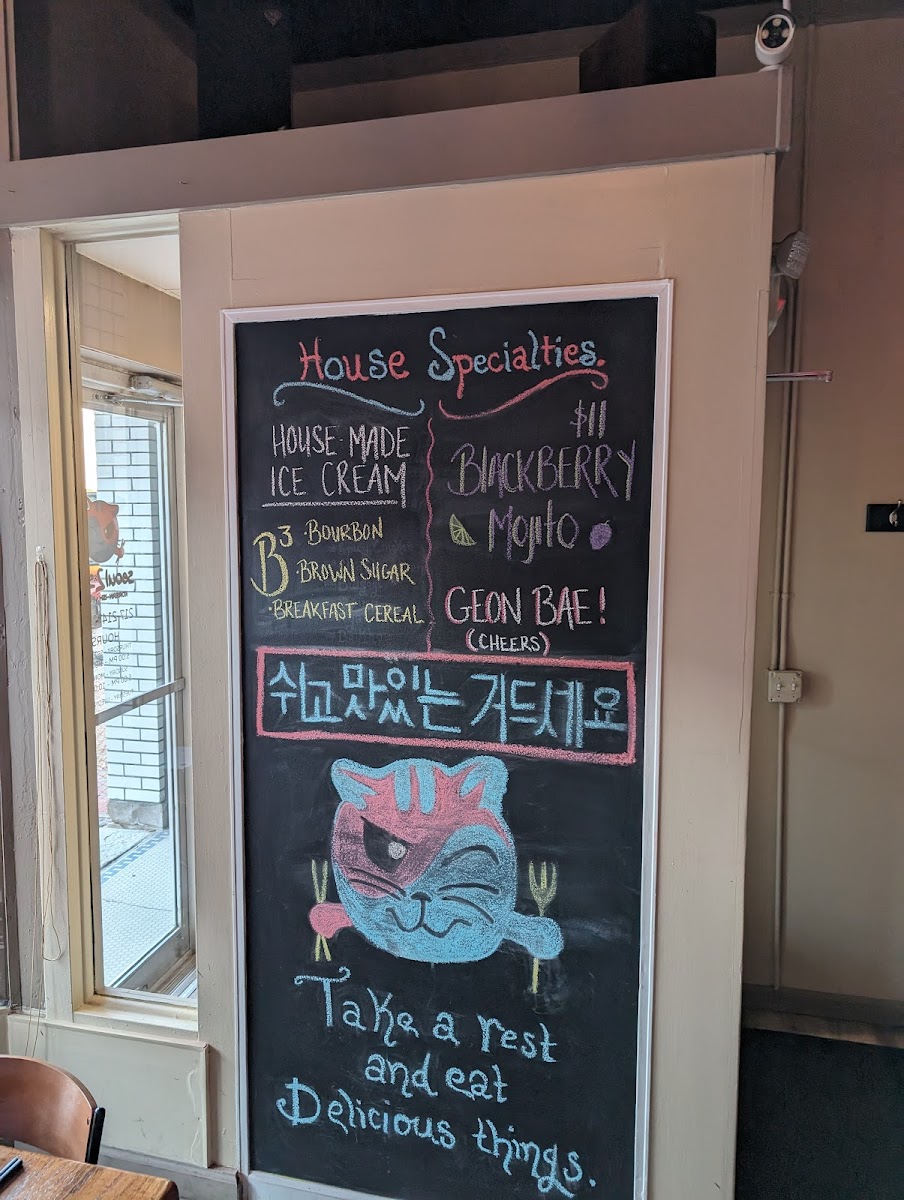 House Specialties.
HOUSE-MADE
ICE CREAM
B³ • BOURBON
• BROWN SUGAR
• BREAKFAST CEREAL
$11
BLACKBERRY
Mojito
GEON BAE!
(CHEERS)
쉬고 맛있는 거드세요
Take a rest
and eat
Delicious things.